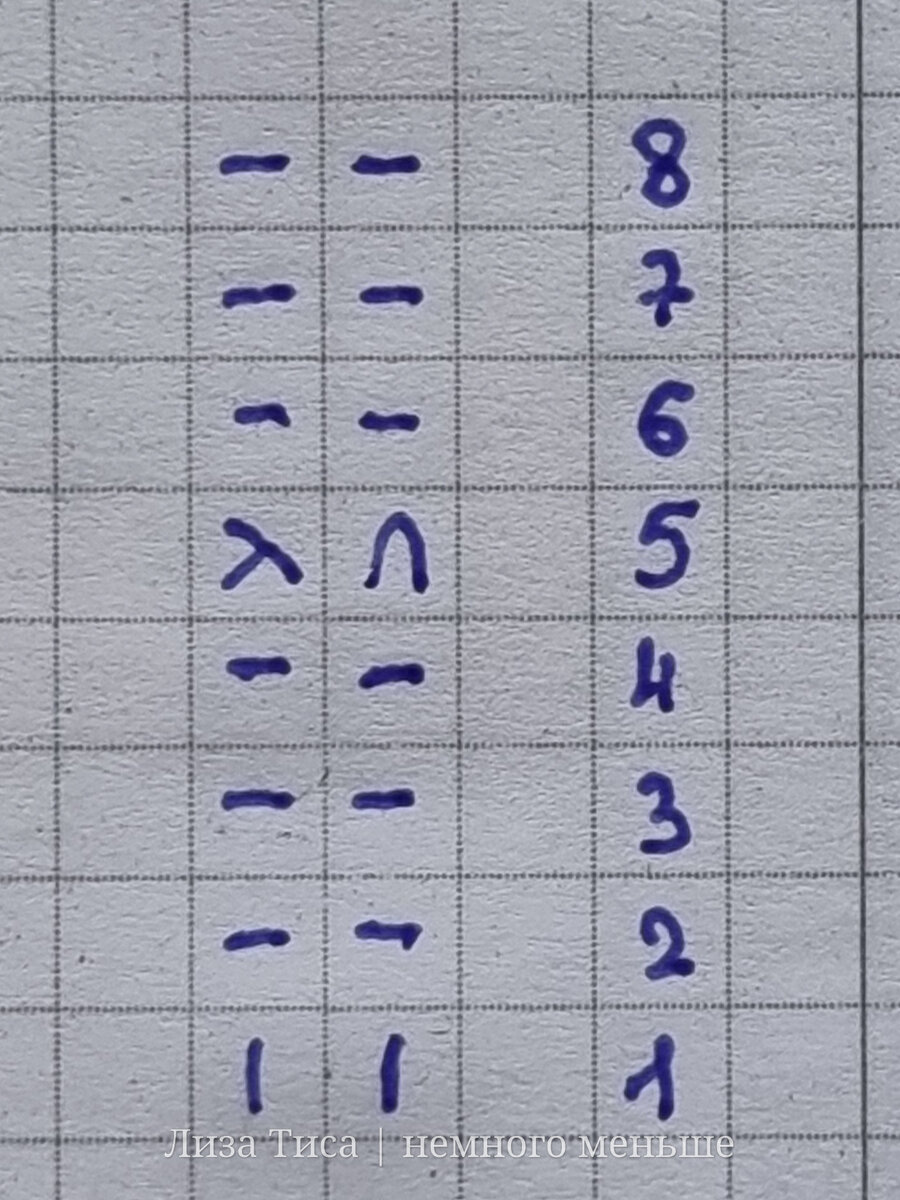 – – 8
– – 7
– – 6
λ ∩ 5
– – 4
– – 3
– – 2
| | 1
Лиза Тиса | немного меньше